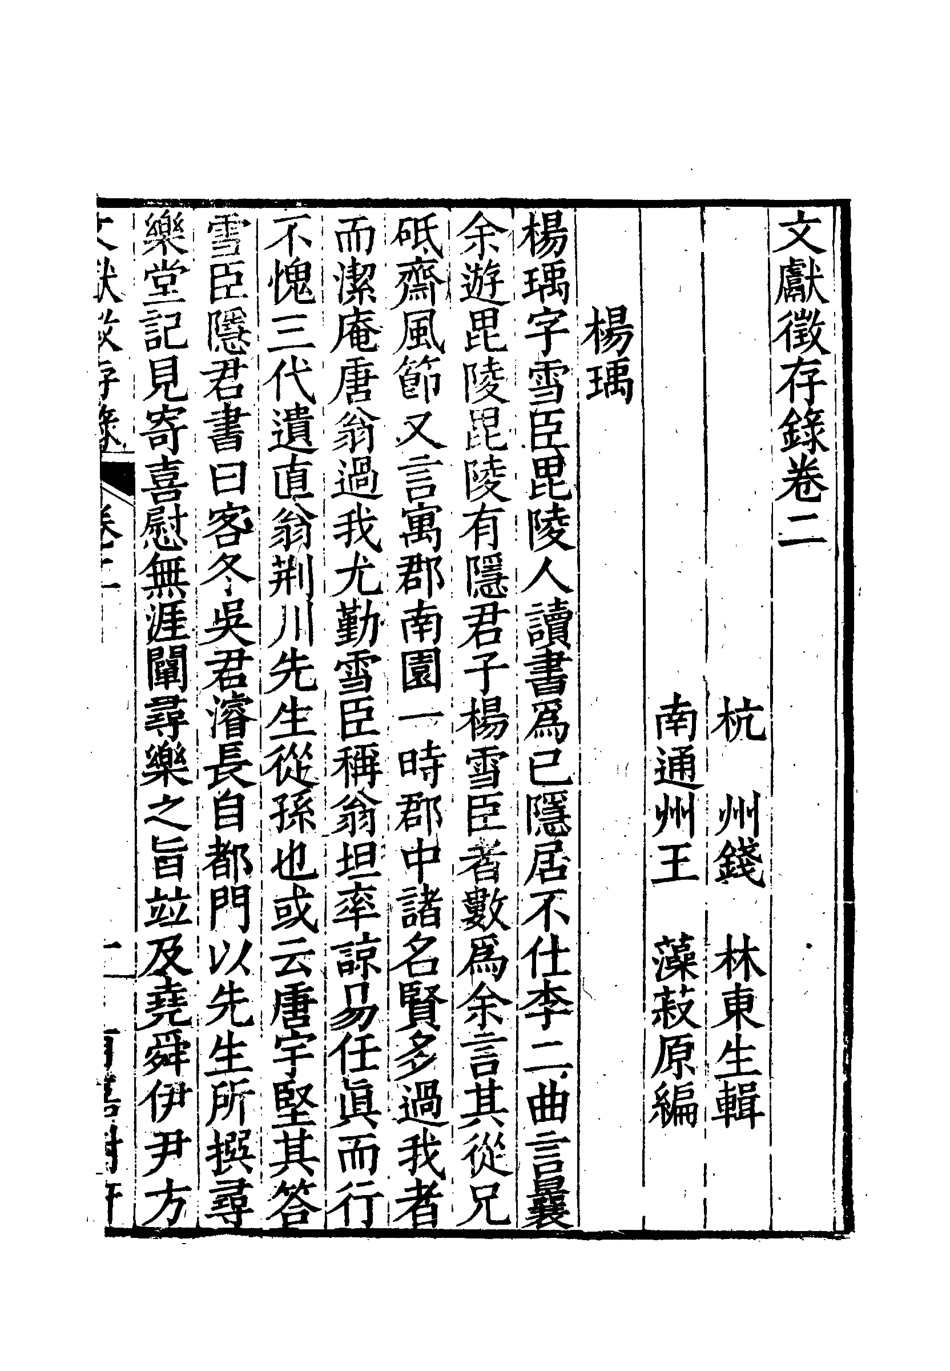 文獻徵存錄卷二
杭　州錢　林東生輯
南通州王　藻菽原編
楊瑀
楊瑀字雪臣毘陵人讀書爲己隱居不仕李二曲言曩
余遊毘陵毘陵有隱君子楊雪臣者數爲余言其從兄
砥齋風節又言寓郡南園一時郡中諸名賢多過我者
而潔庵唐翁過我尤勤雪臣稱翁坦率諒易任眞而行
不愧三代遺直翁荆川先生從孫也或云唐宇堅其答
雪臣隱君書曰客冬吳君濬長自都門以先生所撰尋
樂堂記見寄喜慰無涯闡尋樂之旨竝及堯舜伊尹方
文獻徵存錄　卷二　一